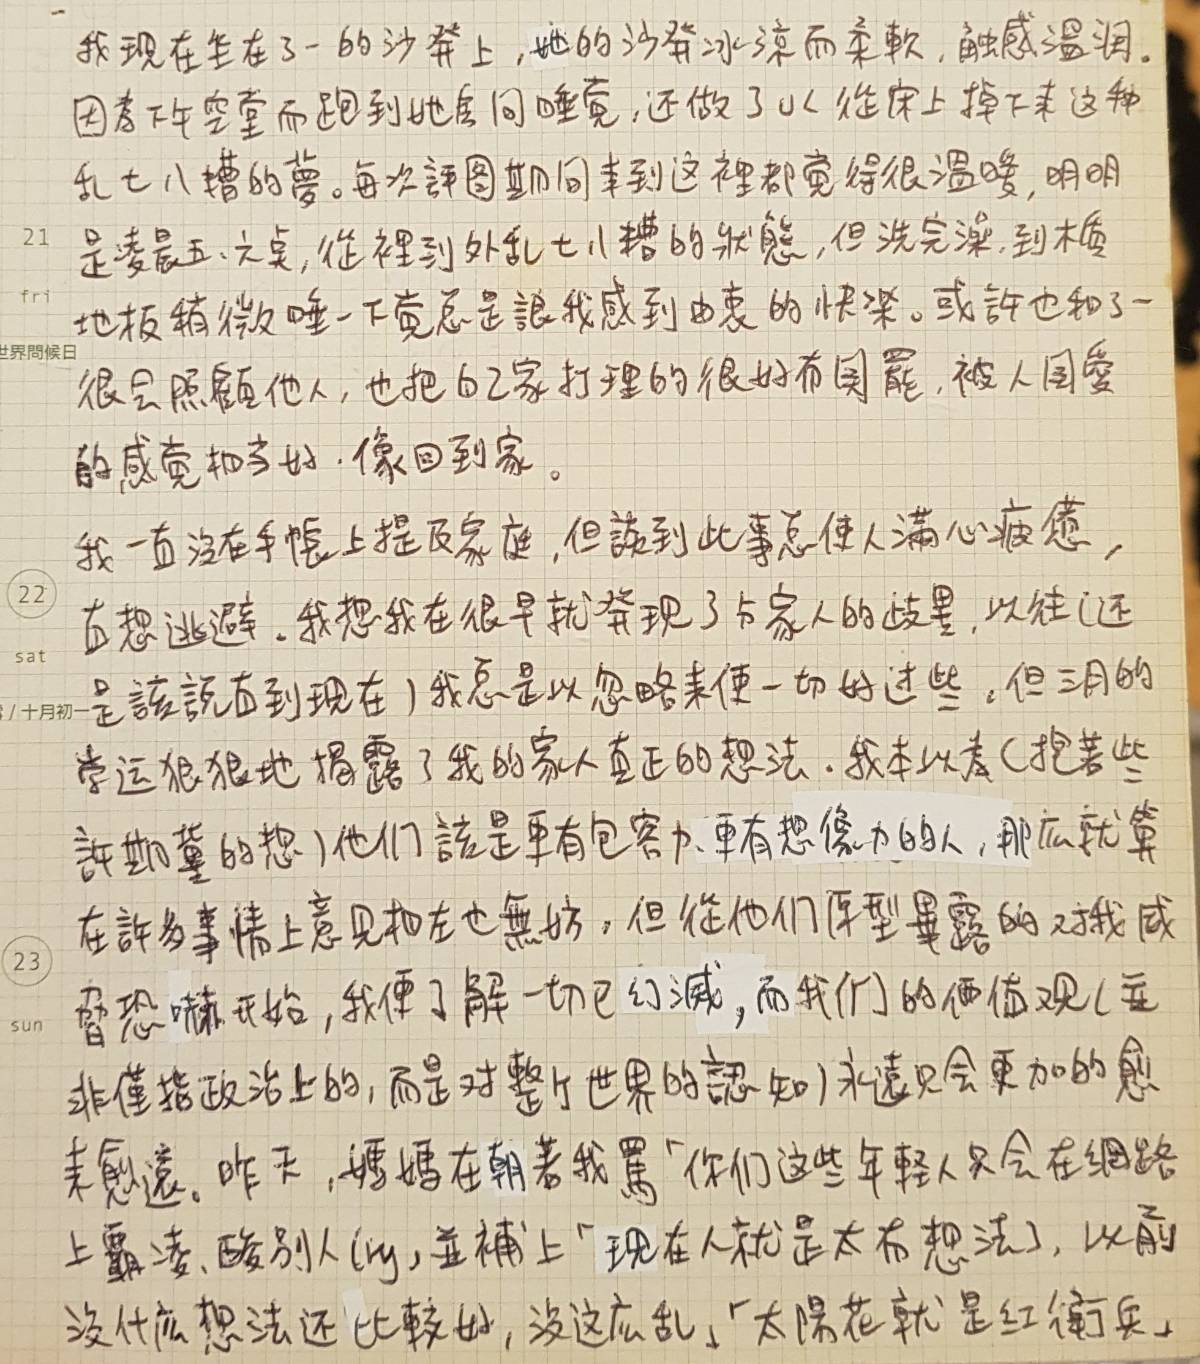 我现在坐在了一的沙發上，她的沙發冰涼而柔軟，触感溫润。
因為下午空堂而跑到她房间睡覚，还做了UK從床上掉下来这种
乱七八糟的夢。每次評图期间来到这裡都覚得很溫暖，明明
21
是凌晨五、六点，從裡到外乱七八糟的狀態，但洗完澡，到木質
fri
地板稍微睡一下覚总是讓我感到由衷的快樂。或許也和了一
世界問候日
很会照顧他人，也把自己家打理的很好有関罷，被人関愛
的感覚相当好，像回到家。
我一直沒在手帳上提及家庭，但談到此事总使人滿心疲憊，
22
直想逃避。我想我在很早就發现了与家人的歧異，以往（还
sat
是該說直到現在）我总是以忽略来使一切好过些。但三月的
/十月初一
学运狠狠地揭露了我的家人真正的想法。我本以為（抱著些
許期冀的想）他们該是更有包容力、更有想像力的人，那広就算
在許多事情上意見相左也無妨，但從他们原型畢露的对我威
23
脅恐嚇开始，我便了解一切已幻滅，而我们的価值观（並
sun
非僅指政治上的，而是对整个世界的認知）永遠只会更加的愈
来愈遠。昨天，媽媽在朝著我罵「你们这些年軽人只会在網路
上霸凌、酸別人」，並補上「現在人就是太有想法」，以前
沒什広想法还比較好，沒这広乱」「太陽花就是红衛兵」